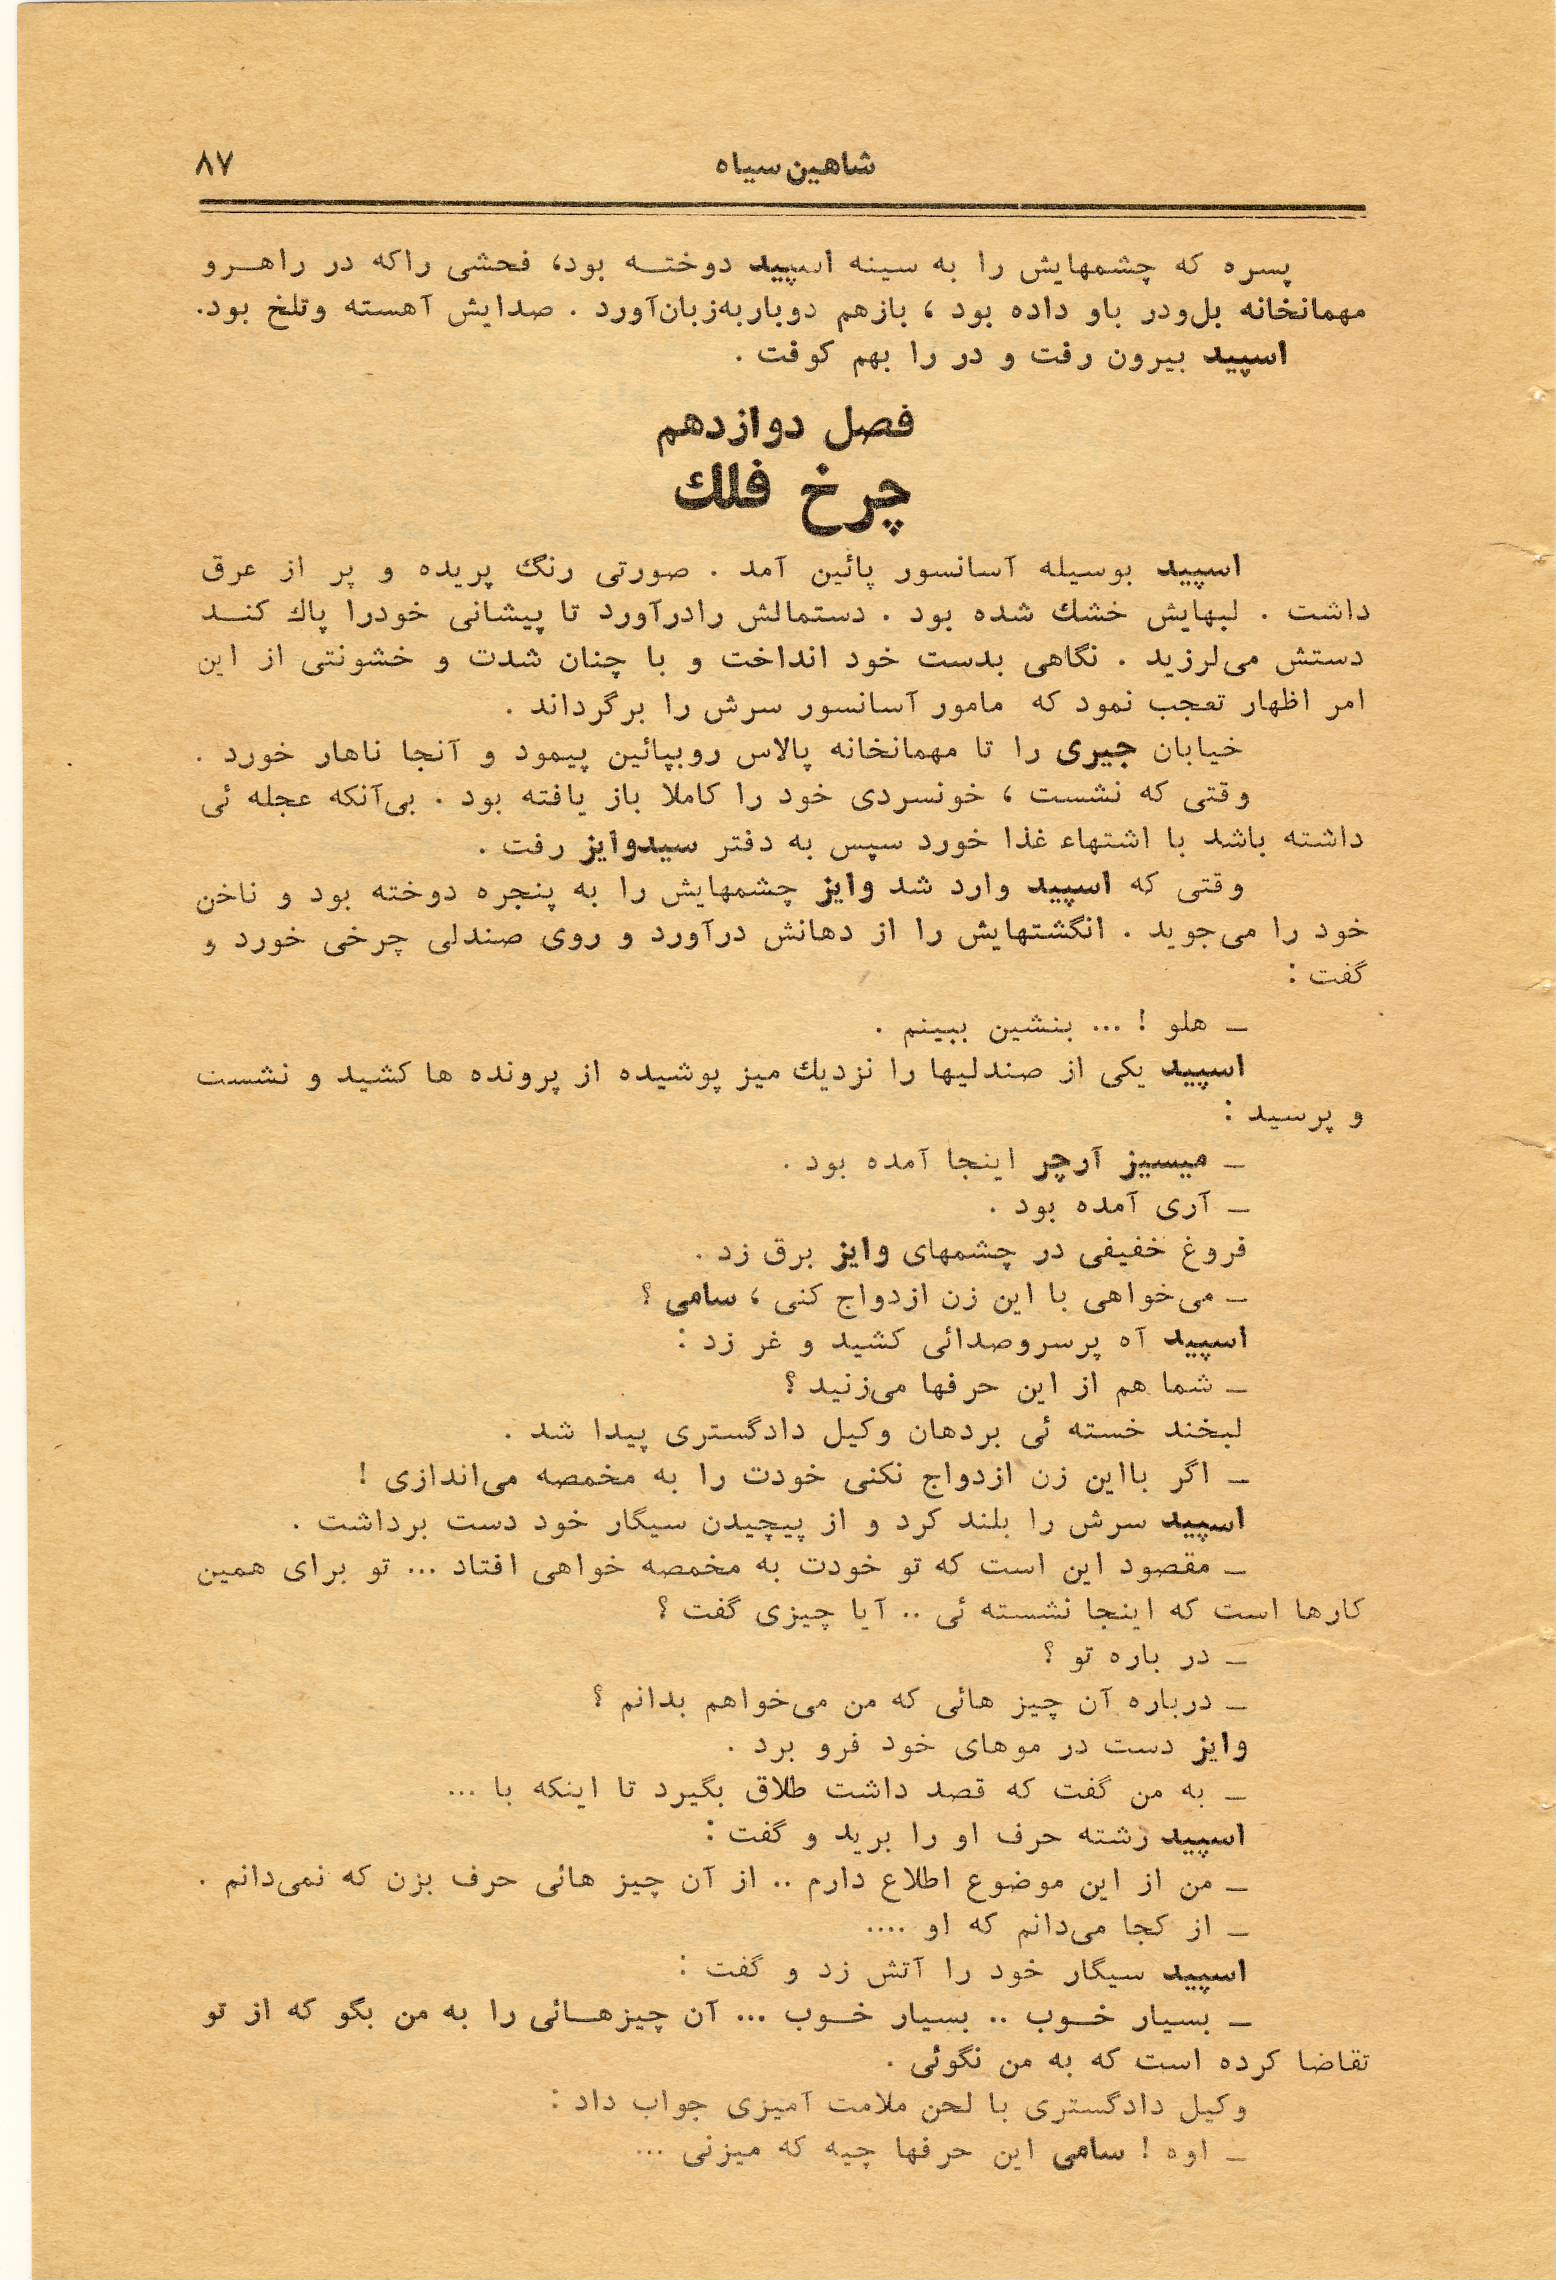 شاهین سیاه
۸۷
پسره که چشمهایش را به سینه اسپید دوختـه بود، فحشی راکه در راهـرو
مهمانخانه بل‌ودر باو داده بود ، بازهم دوباربه‌زبان‌آورد . صدایش آهسته وتلخ بود.
اسپید بیرون رفت و در را بهم کوفت .
فصل دوازدهم
چرخ فلك
اسپید بوسیله آسانسور پائین آمد . صورتی رنگ پریده و پر از عرق
داشت . لبهایش خشك شده بود . دستمالش رادرآورد تا پیشانی خودرا پاك کنـد
دستش می‌لرزید . نگاهی بدست خود انداخت و با چنان شدت و خشونتی از این
امر اظهار تعجب نمود که مامور آسانسور سرش را برگرداند .
خیابان جیری را تا مهمانخانه پالاس روبپائین پیمود و آنجا ناهار خورد .
وقتی که نشست ، خونسردی خود را کاملا باز یافته بود . بی‌آنکه عجله ئی
داشته باشد با اشتهاء غذا خورد سپس به دفتر سیدوایز رفت .
وقتی که اسپید وارد شد وایز چشمهایش را به پنجره دوخته بود و ناخن
خود را می‌جوید . انگشتهایش را از دهانش درآورد و روی صندلی چرخی خورد و
گفت :
ـ هلو ! ... بنشین ببینم .
اسپید یکی از صندلیها را نزدیك میز پوشیده از پرونده ها کشید و نشست
و پرسید :
ـ میسیز آرچر اینجا آمده بود .
ـ آری آمده بود .
فروغ خفیفی در چشمهای وایز برق زد .
ـ می‌خواهی با این زن ازدواج کنی ، سامی ؟
اسپید آه پرسروصدائی کشید و غر زد :
ـ شما هم از این حرفها می‌زنید ؟
لبخند خسته ئی بردهان وکیل دادگستری پیدا شد .
ـ اگر بااین زن ازدواج نکنی خودت را به مخمصه می‌اندازی !
اسپید سرش را بلند کرد و از پیچیدن سیگار خود دست برداشت .
ـ مقصود این است که تو خودت به مخمصه خواهی افتاد ... تو برای همین
کارها است که اینجا نشسته ئی .. آیا چیزی گفت ؟
ـ در باره تو ؟
ـ درباره آن چیز هائی که من می‌خواهم بدانم ؟
وایز دست در موهای خود فرو برد .
ـ به من گفت که قصد داشت طلاق بگیرد تا اینکه با ...
اسپید رشته حرف او را برید و گفت :
ـ من از این موضوع اطلاع دارم .. از آن چیز هائی حرف بزن که نمی‌دانم .
ـ از کجا می‌دانم که او ....
اسپید سیگار خود را آتش زد و گفت :
ـ بسیار خـوب .. بسیار خـوب ... آن چیزهـائی را به من بگو که از تو
تقاضا کرده است که به من نگوئی .
وکیل دادگستری با لحن ملامت آمیزی جواب داد :
ـ اوه ! سامی این حرفها چیه که میزنی ...